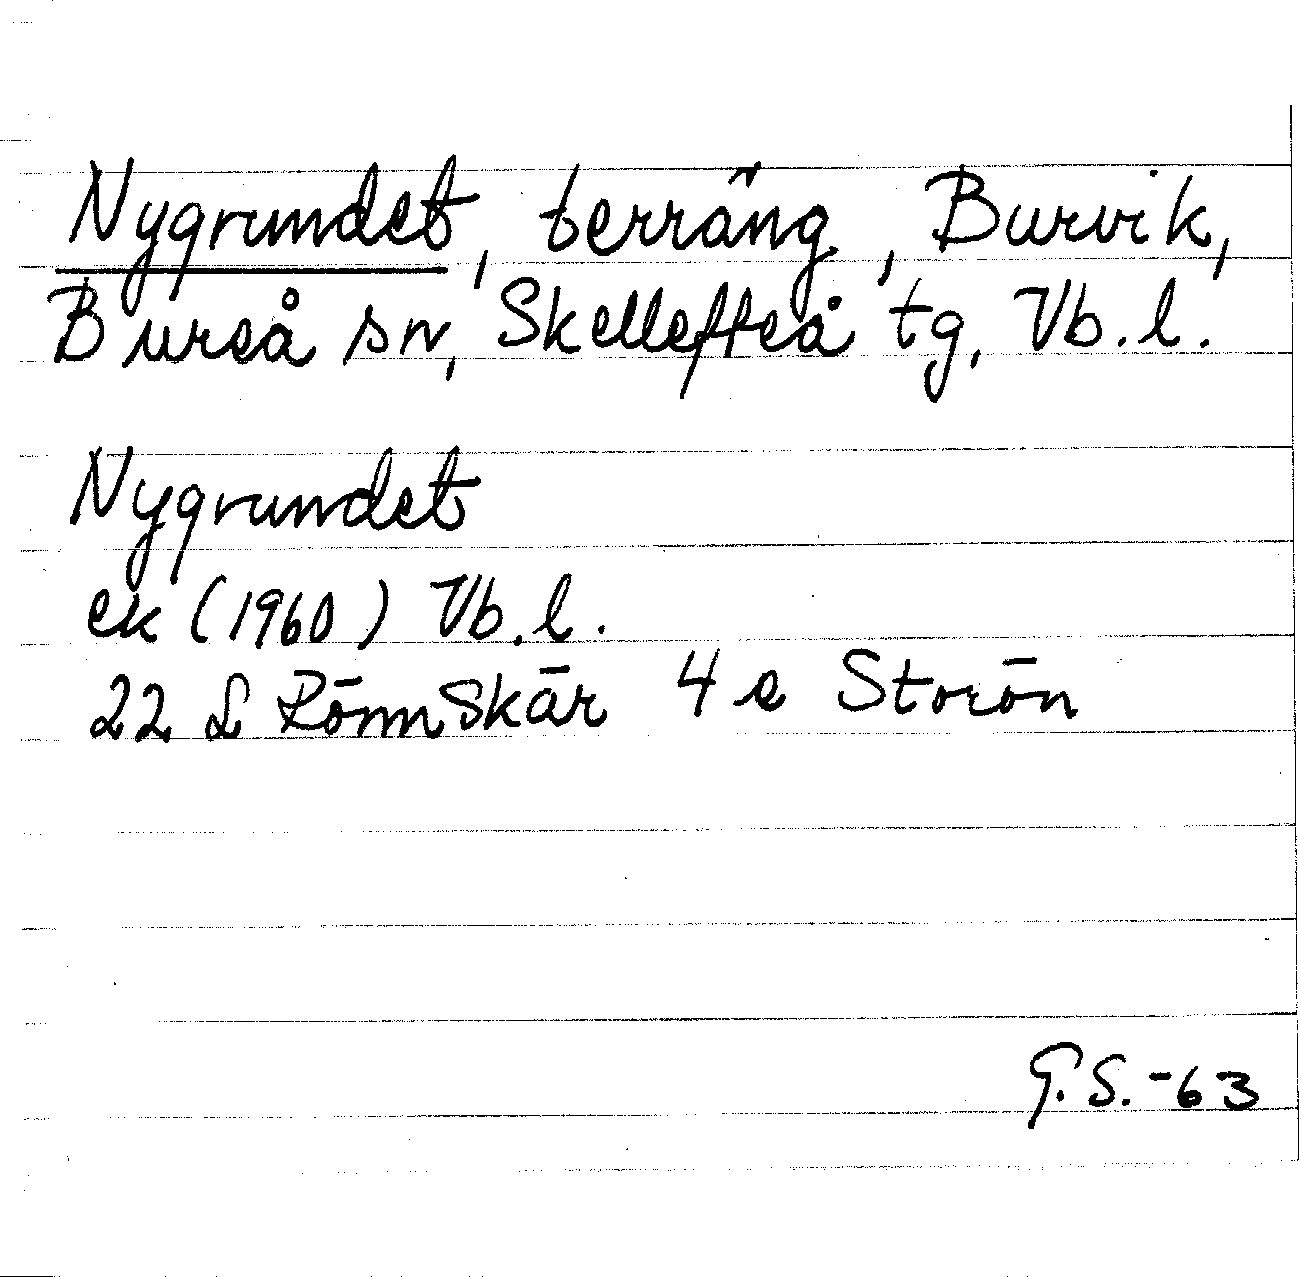 Nygrundet, terräng, Burvik,
Bureå sn, Skellefteå tg, Vb. l.
Nygrundet
ek (1960) Vb. l.
22 L Rönnskär 4 e Storön
G. S. -63